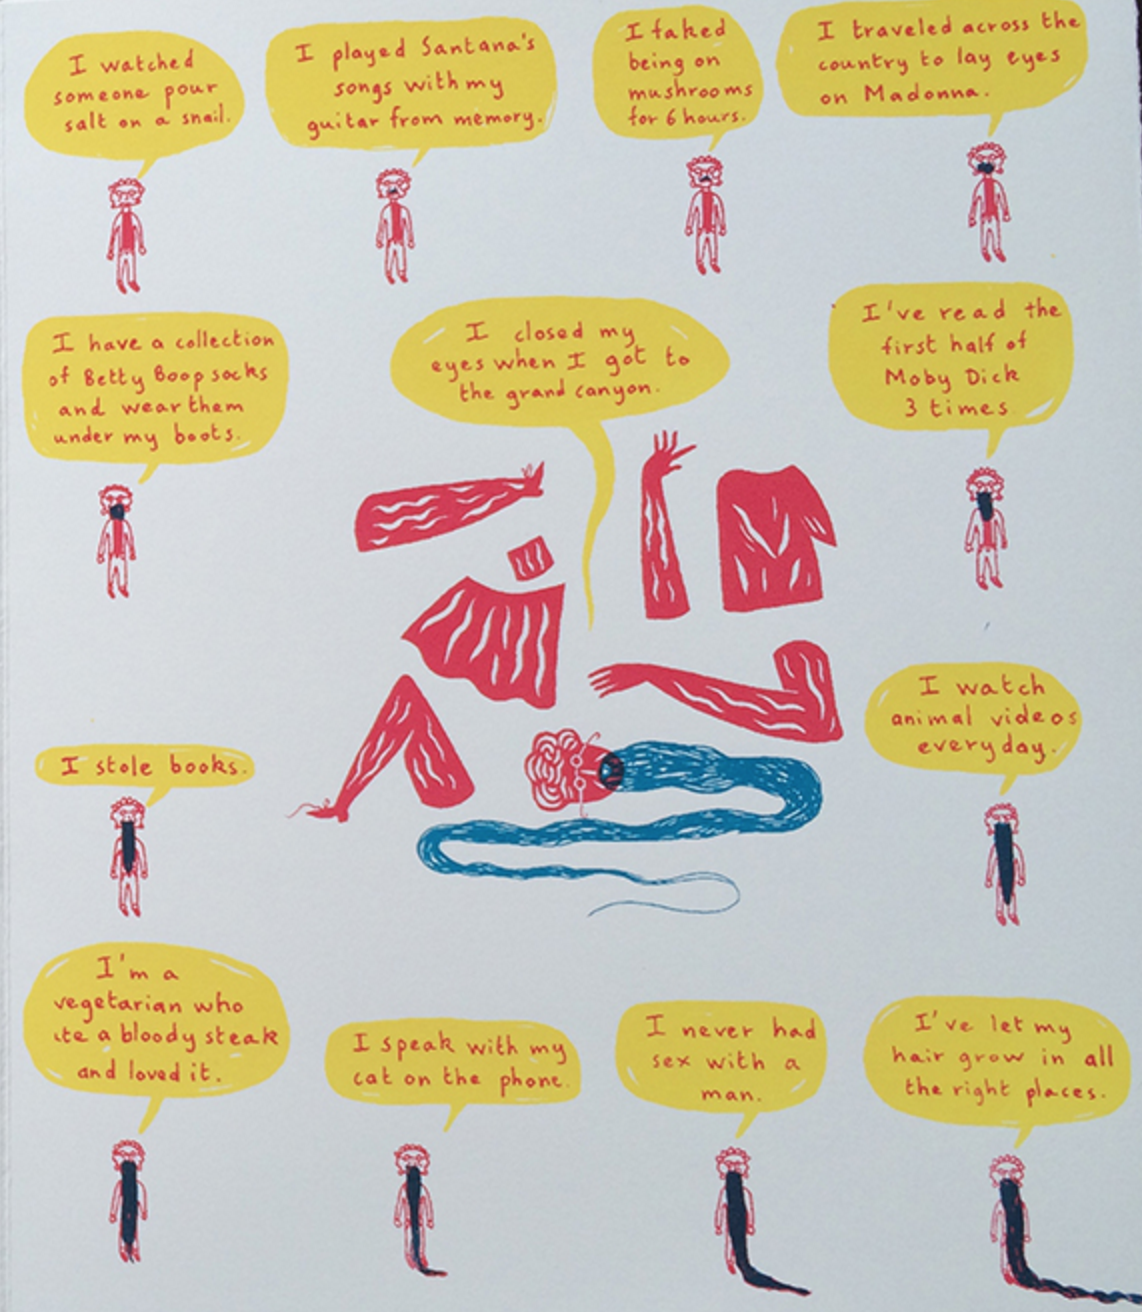 I watched
someone pour
salt on a snail.
I played Santana's
songs with my
guitar from memory.
I faked
being on
mushrooms
for 6 hours.
I traveled across the
country to lay eyes
on Madonna.
I have a collection
of Betty Boop socks
and wear them
under my boots.
I closed my
eyes when I got to
the grand canyon.
I've read the
first half of
Moby Dick
3 times
I stole books.
I watch
animal videos
everyday.
I'm a
vegetarian who
ate a bloody steak
and loved it.
I speak with my
cat on the phone.
I never had
sex with a
man.
I've let my
hair grow in all
the right places.